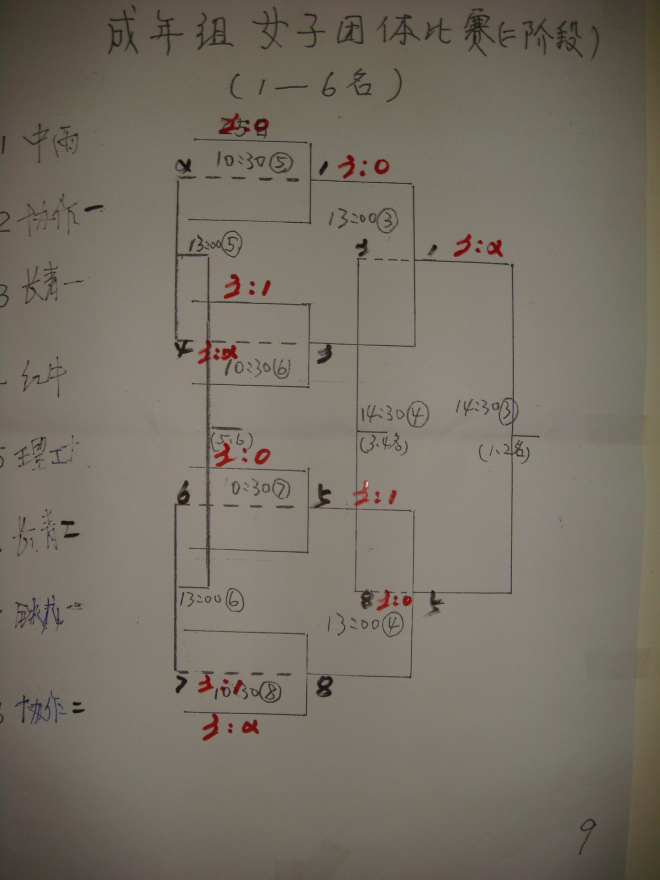 成年组 女子团体比赛(二阶段)
(1—6名)
1 中雨
2 协作一
3 长青一
红中
5 理工大
长青二
协作二
3:0
10:30⑤
2
1 3:0
13:00③
13:00⑤
3
1 3:2
3:1
4 3:2
3
10:30⑥
14:30④
14:30③
(5.6)
(3.4名)
(1.2名)
3:0
10:30⑦
6
5 3:1
13:00⑥
8 3:0 5
13:00④
7 3:1
10:30⑧
8
3:2
9